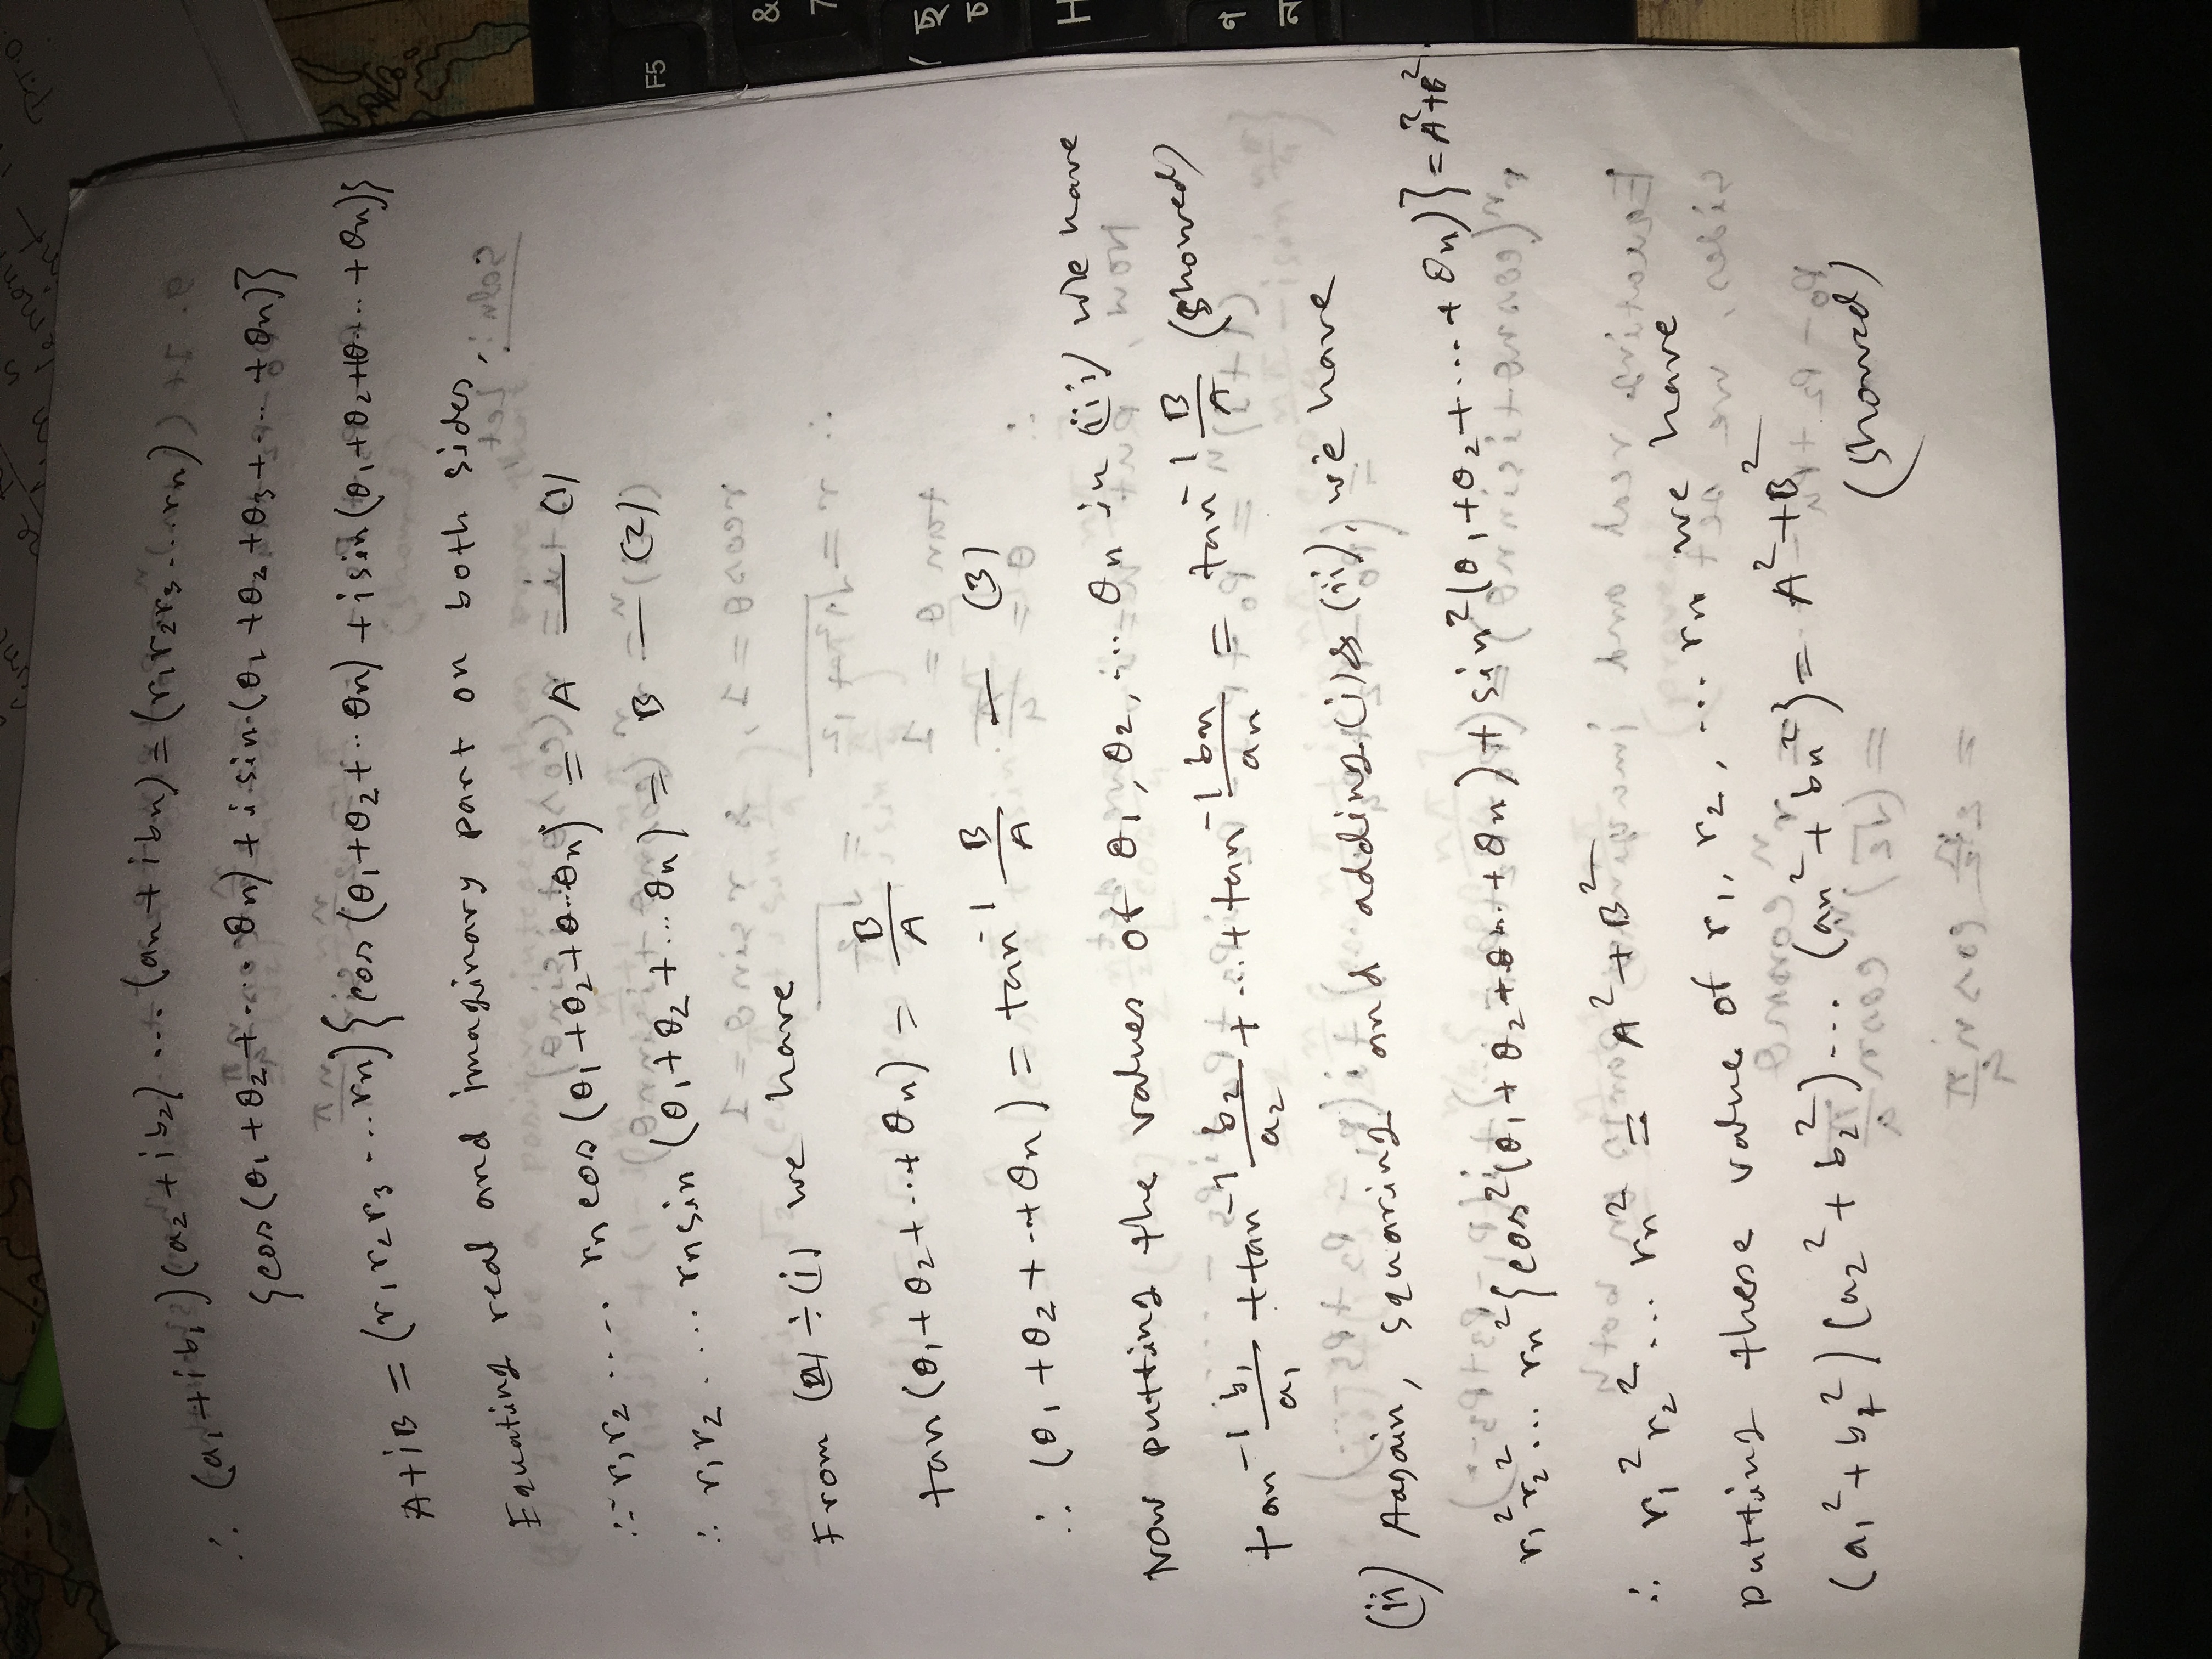 ∴ (a₁+ib₁)(a₂+ib₂) ... (an+ibn) = (r₁r₂r₃...rn)
{cos(θ₁+θ₂+... θn) + i sin(θ₁+θ₂+θ₃+...+θn)}
A+iB = (r₁r₂r₃...rn){cos(θ₁+θ₂+..θn) + i sin(θ₁+θ₂+θ...+θn)}
Equating real and imaginary part on both sides,
∴ r₁r₂ .... rn cos(θ₁+θ₂+θ..θn) = A — (1)
∴ r₁r₂ .... rn sin(θ₁+θ₂+...θn) = B — (2)
From (2) ÷ (i) we have
tan(θ₁+θ₂+..+θn) = B/A
∴ (θ₁+θ₂+..+θn) = tan⁻¹ B/A — (3)
Now putting the values of θ₁, θ₂, ... θn in (iii) we have
tan⁻¹ b₁/a₁ + tan⁻¹ b₂/a₂ + ... + tan⁻¹ bn/an = tan⁻¹ B/A (showed)
(ii) Aagain, squaring and adding (i) & (ii), we have
r₁²r₂²... rn²{cos²(θ₁+θ₂+θ..+θn) + sin²(θ₁+θ₂+...+θn)} = A²+B².
∴ r₁²r₂²... rn² = A²+B²
putting these value of r₁, r₂, ... rn we have
(a₁²+b₂²)(a₂²+b₂²)... (an²+bn²} = A²+B²
(showed)
F5
&
7
H